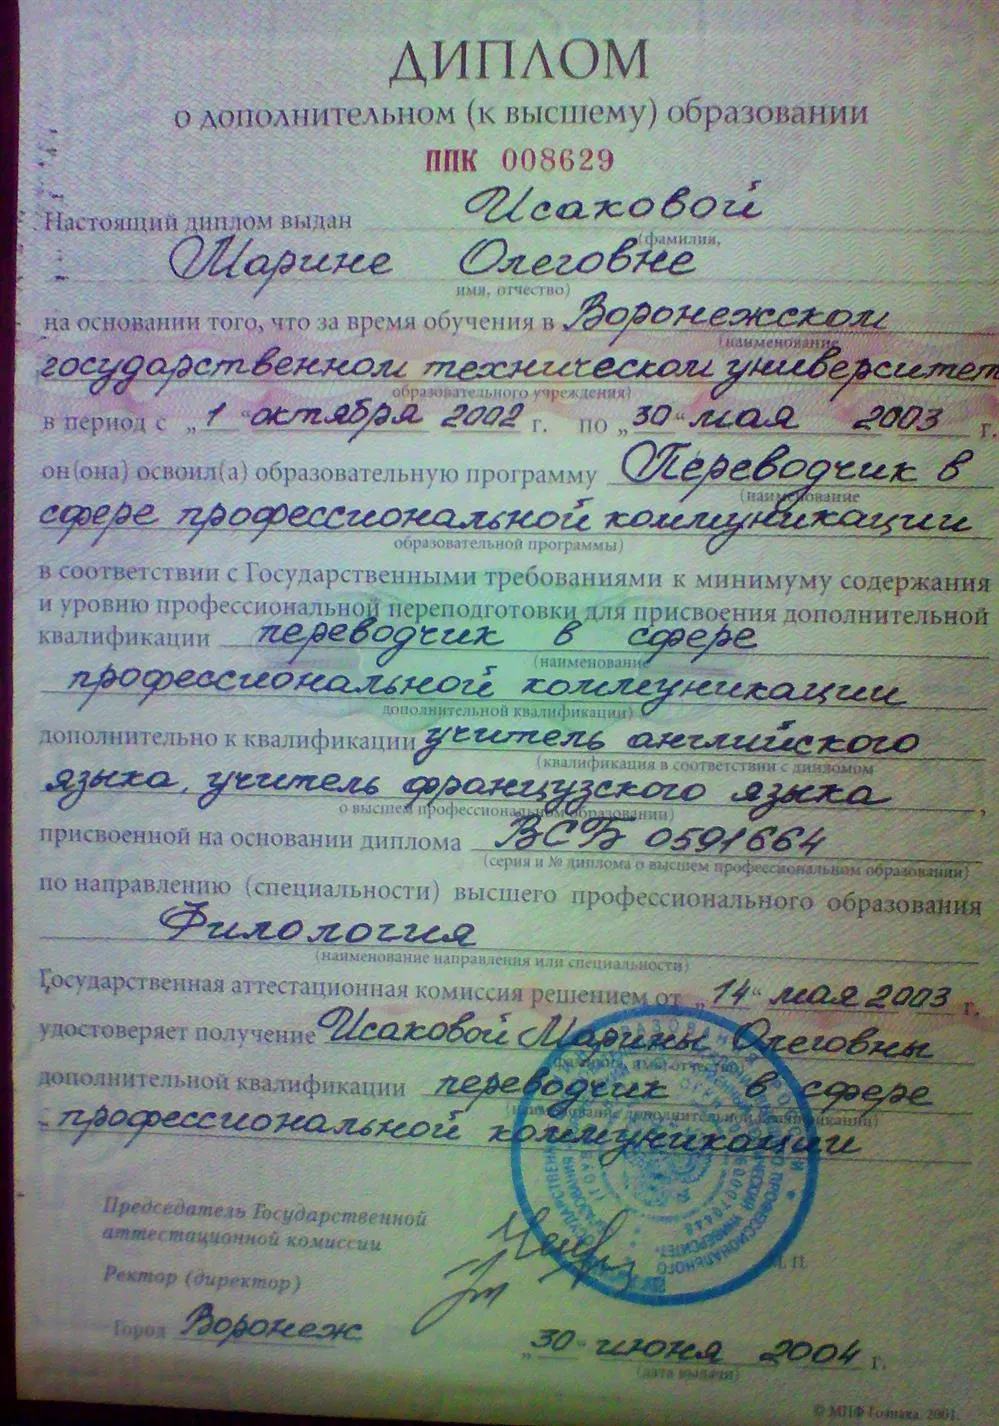 ДИПЛОМ
о дополнительном (к высшему) образовании
ППК 008629
Настоящий диплом выдан Исаковой
(фамилия,
Марине Олеговне
имя, отчество)
на основании того, что за время обучения в Воронежском
(наименование
государственном техническом университет
образовательного учреждения)
в период с „1“ октября 2002 г. по „30“ мая 2003 г.
он(она) освоил(а) образовательную программу Переводчик в
(наименование
сфере профессиональной коммуникации
образовательной программы)
в соответствии с Государственными требованиями к минимуму содержания
и уровню профессиональной переподготовки для присвоения дополнительной
квалификации переводчик в сфере
(наименование
профессиональной коммуникации
дополнительной квалификации)
дополнительно к квалификации учитель английского
(квалификация в соответствии с дипломом
языка, учитель французского языка,
о высшем профессиональном образовании)
присвоенной на основании диплома ВСБ 0591664
(серия и № диплома о высшем профессиональном образовании)
по направлению (специальности) высшего профессионального образования
Филология
(наименование направления или специальности)
Государственная аттестационная комиссия решением от „14“ мая 2003 г.
удостоверяет получение Исаковой Марины Олеговны
(фамилия, имя, отчество)
дополнительной квалификации переводчик в сфере
(наименование дополнительной квалификации)
профессиональной коммуникации
Председатель Государственной
аттестационной комиссии
Ректор (директор)
М. П.
Город Воронеж
„30“ июня 2004 г.
(дата выдачи)
© МПФ Гознака. 2001.